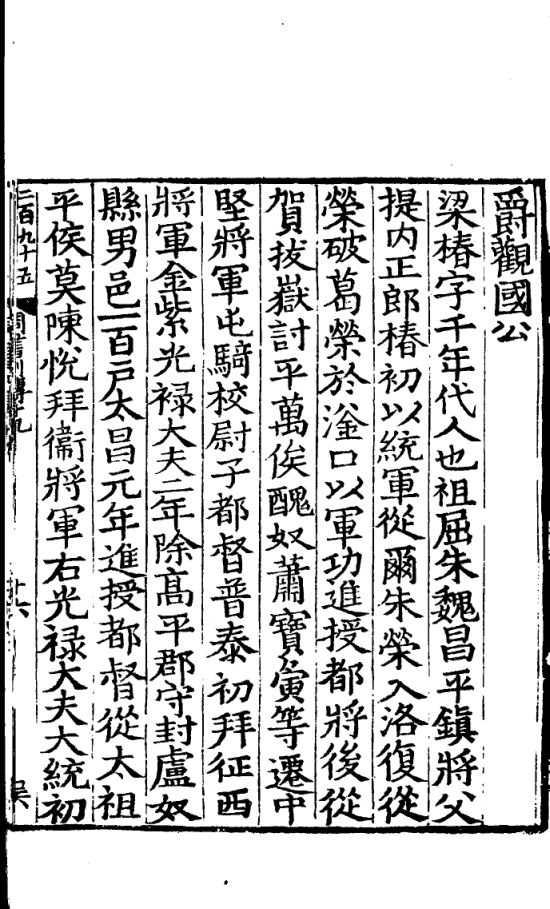 爵觀國公
梁椿字千年代人也祖屈朱魏昌平鎮將父
提內正郎椿初以統軍從爾朱榮入洛復從
榮破葛榮於滏口以軍功進授都將後從
賀拔嶽討平萬俟醜奴蕭寶寅等遷中
堅將軍屯騎校尉子都督普泰初拜征西
將軍金紫光祿大夫二年除高平郡守封盧奴
縣男邑一百戶太昌元年進授都督從太祖
平侯莫陳悅拜衞將軍右光祿大夫大統初
二百九十五
周書列傳十九
十六
吳